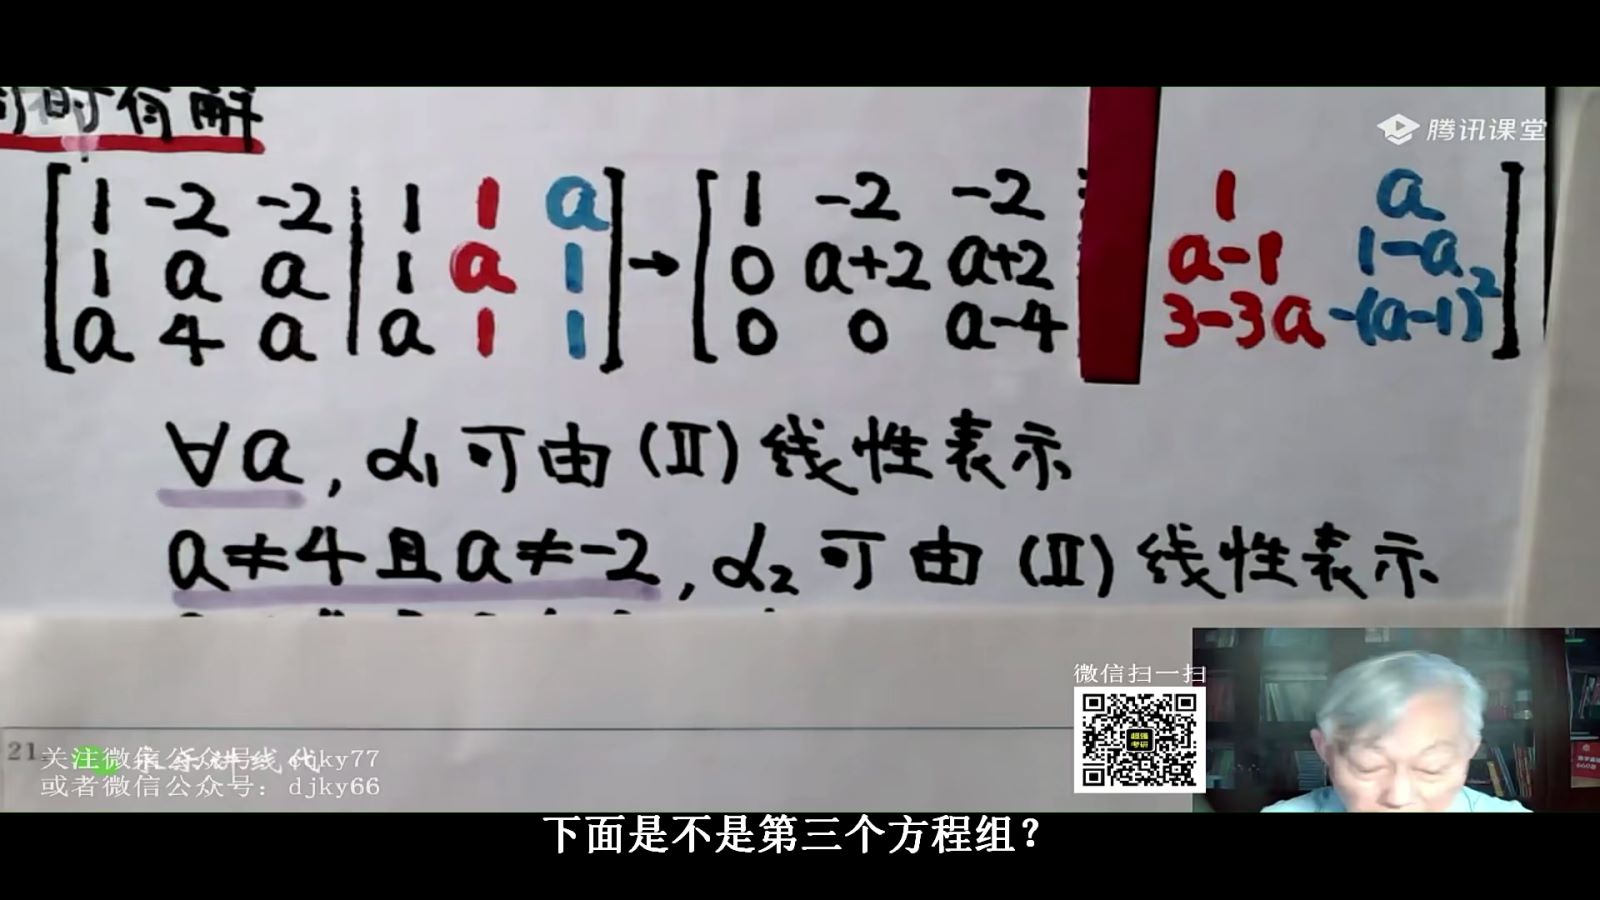 时有解
腾讯课堂
1 -2 -2 | 1 1 a → 1 -2 -2 1 a
1 a a | 1 a 1 0 a+2 a+2 a-1 1-a
a 4 a | a 1 1 0 0 a-4 3-3a -(a-1)²
∀a, α₁可由(Ⅱ)线性表示
a≠4且a≠-2, α₂可由(Ⅱ)线性表示
微信扫一扫
超强
考研
21
关注微信公众号: chky77
或者微信公众号: djky66
下面是不是第三个方程组?